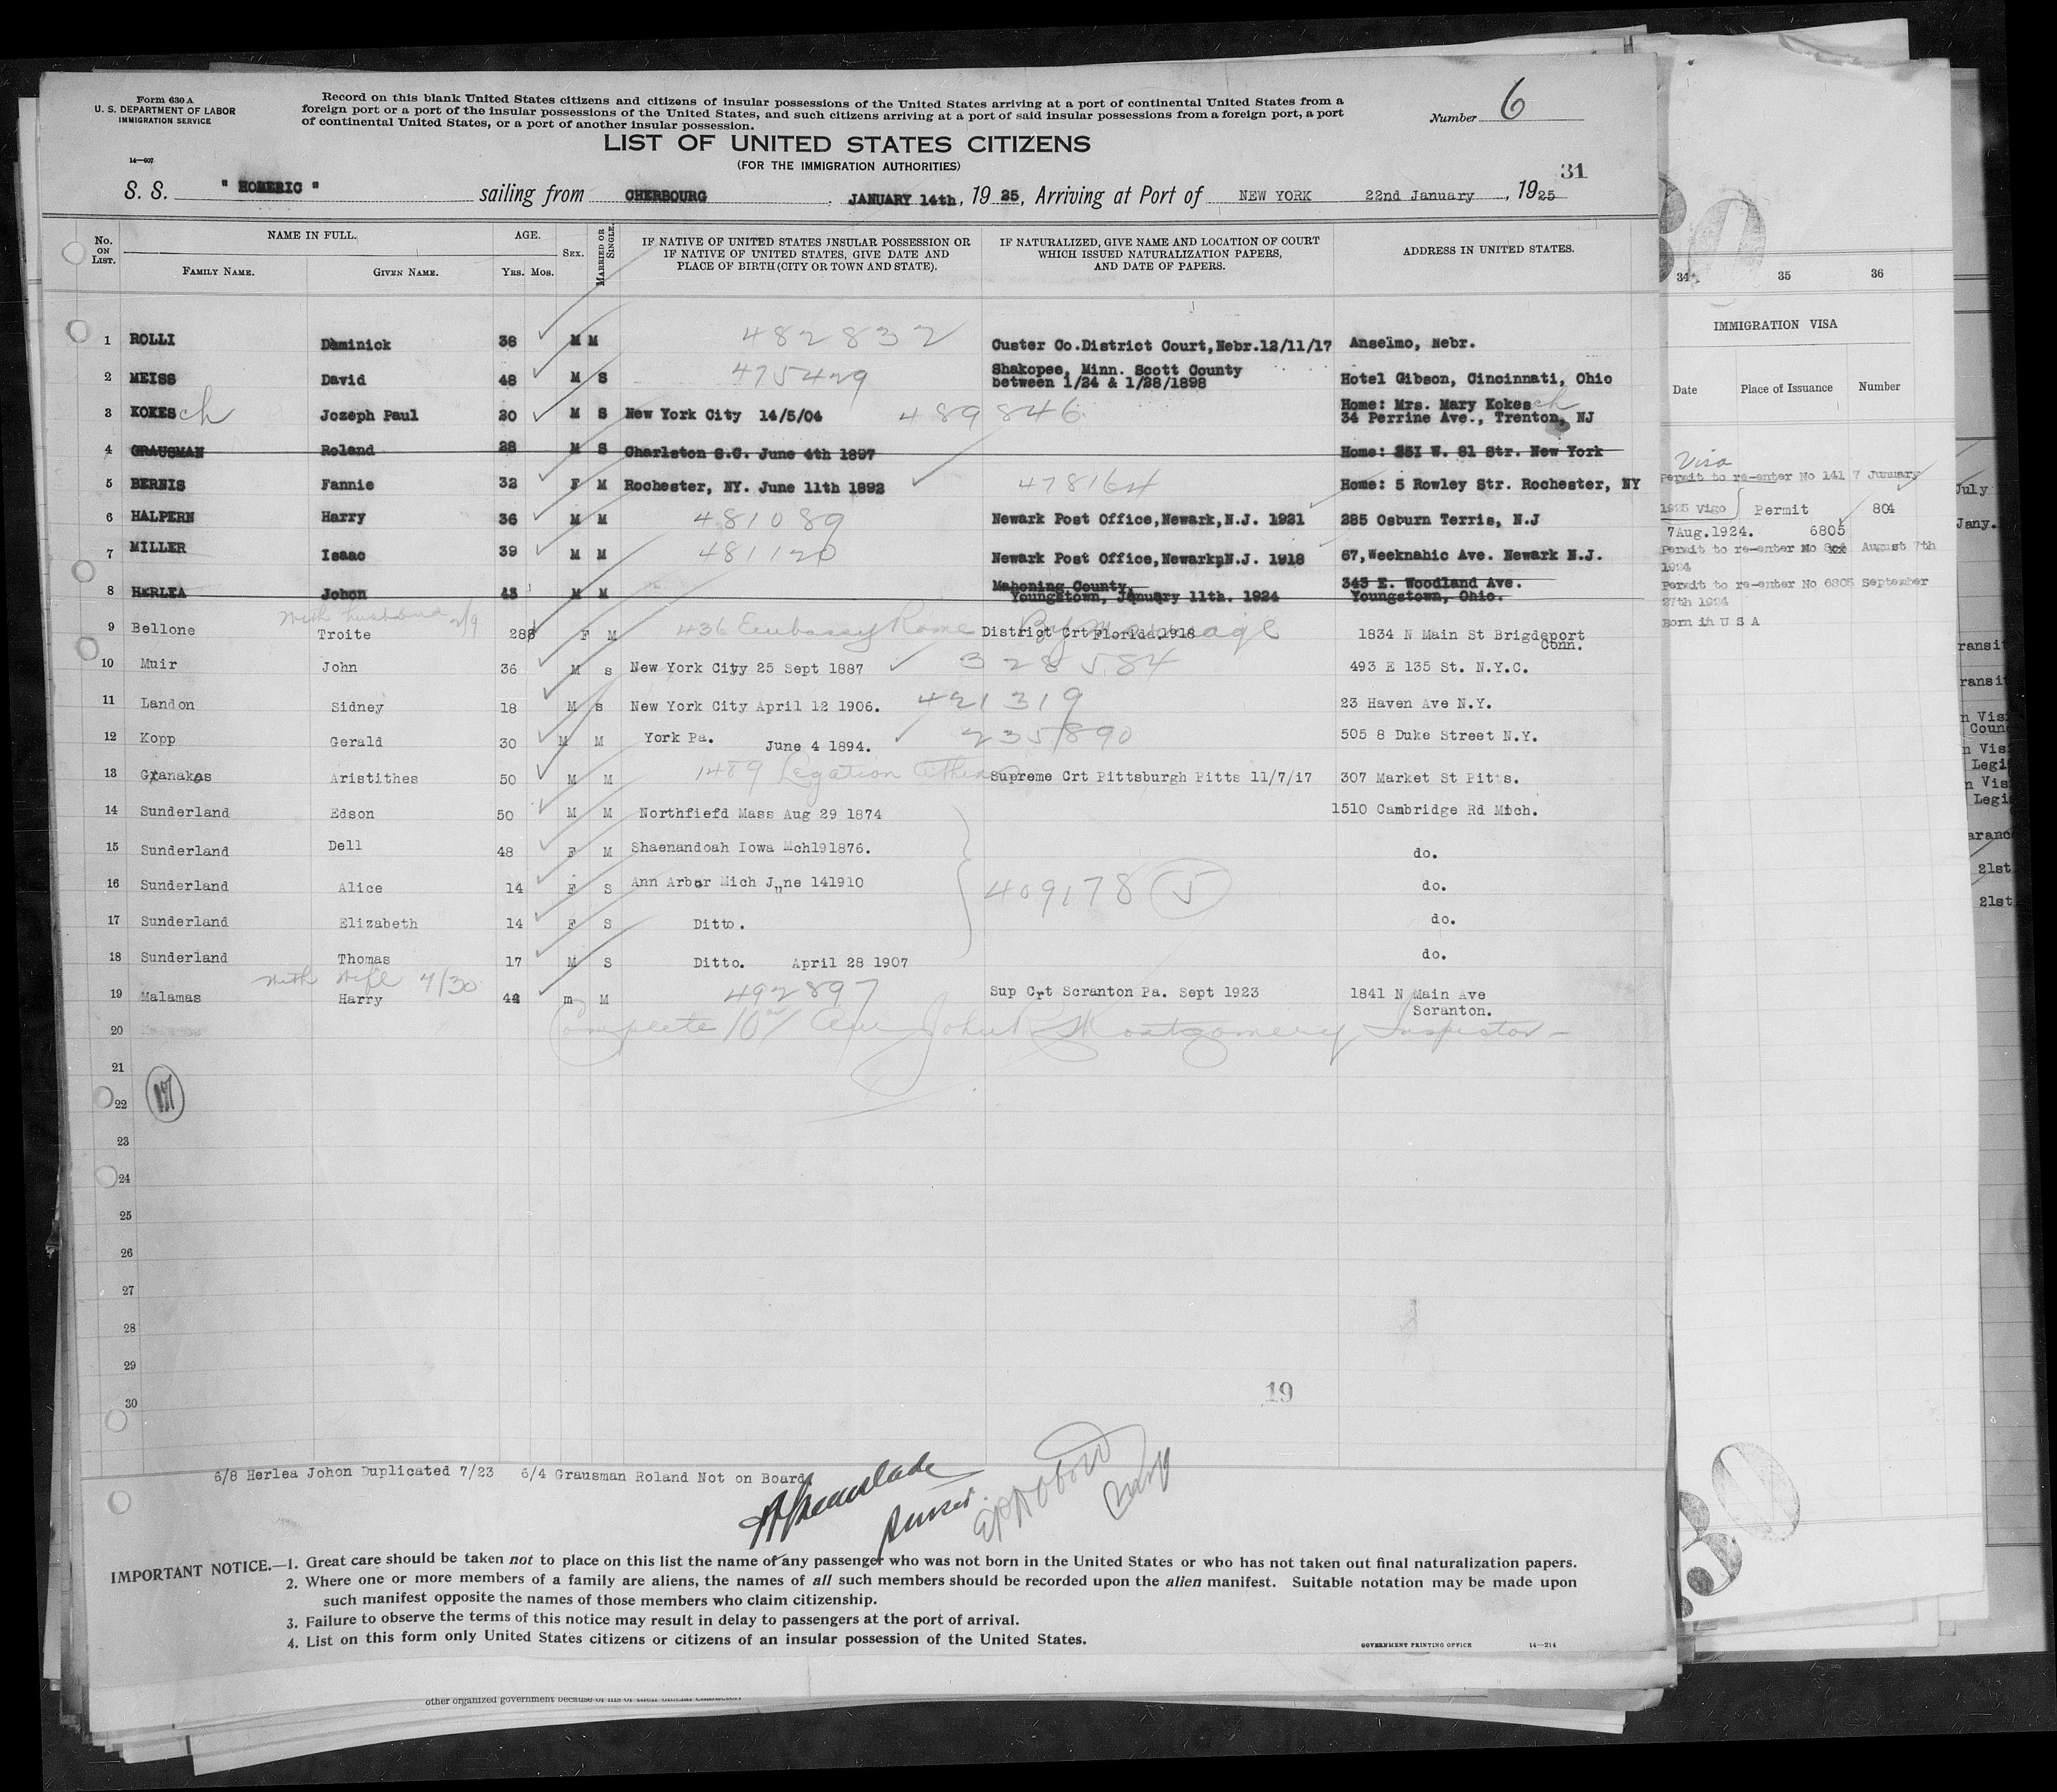 Form 630 A
U. S. DEPARTMENT OF LABOR
IMMIGRATION SERVICE
14—607
Record on this blank United States citizens and citizens of insular possessions of the United States arriving at a port of continental United States from a
foreign port or a port of the insular possessions of the United States, and such citizens arriving at a port of said insular possessions from a foreign port, a port
of continental United States, or a port of another insular possession.
Number 6
LIST OF UNITED STATES CITIZENS
(FOR THE IMMIGRATION AUTHORITIES)
31
S. S. " HOMERIC " sailing from CHERBOURG . JANUARY 14th, 19 25, Arriving at Port of NEW YORK 22nd January , 1925
No. ON LIST. NAME IN FULL. FAMILY NAME. GIVEN NAME. AGE. Yrs. Mos. SEX. MARRIED OR SINGLE.
IF NATIVE OF UNITED STATES INSULAR POSSESSION OR
IF NATIVE OF UNITED STATES, GIVE DATE AND
PLACE OF BIRTH (CITY OR TOWN AND STATE).
IF NATURALIZED, GIVE NAME AND LOCATION OF COURT
WHICH ISSUED NATURALIZATION PAPERS,
AND DATE OF PAPERS.
ADDRESS IN UNITED STATES.
1 ROLLI Daminick 38 M M 482832 Custer Co.District Court,Nebr.12/11/17 Anselmo, Nebr.
2 MEISS David 48 M S 475429 Shakopee, Minn. Scott County
between 1/24 & 1/28/1898 Hotel Gibson, Cincinnati, Ohio
3 KOKESch Jozeph Paul 20 M S New York City 14/5/04 489846 Home: Mrs. Mary Kokesch
34 Perrine Ave., Trenton, NJ
4 GRAUSMAN Roland 28 M S Charlston S.C. June 4th 1897 Home: 251 W. 81 Str. New York
5 BERNIS Fannie 32 F M Rochester, NY. June 11th 1892 478164 Home: 5 Rowley Str. Rochester, NY
6 HALPERN Harry 36 M M 481089 Newark Post Office,Newark,N.J. 1921 285 Osburn Terris, N.J
7 MILLER Isaac 39 M M 481120 Newark Post Office,Newark,N.J. 1918 67,Weeknahic Ave. Newark N.J.
8 HERLEA Johon 43 M M Mahoning County,
Youngstown, January 11th. 1924 343 E. Woodland Ave.
Youngstown, Ohio.
with husband 2/9
9 Bellone Troite 28 F M 436 Embassy Rome District Crt Florida.1918 By Marriage 1834 N Main St Brigdeport
Conn.
10 Muir John 36 M s New York City 25 Sept 1887 328584 493 E 135 St. N.Y.C.
11 Landon Sidney 18 M s New York City April 12 1906. 421319 23 Haven Ave N.Y.
12 Kopp Gerald 30 M M York Pa. June 4 1894. 235890 505 8 Duke Street N.Y.
13 Granakos Aristithes 50 M M 1489 Legation Athens Supreme Crt Pittsburgh Pitts 11/7/17 307 Market St Pitts.
14 Sunderland Edson 50 M M Northfiefd Mass Aug 29 1874 1510 Cambridge Rd Mich.
15 Sunderland Dell 48 F M Shaenandoah Iowa Mch191876. do.
16 Sunderland Alice 14 F S Ann Arbor Mich June 141910 409178 5 do.
17 Sunderland Elizabeth 14 F S Ditto. do.
18 Sunderland Thomas 17 M S Ditto. April 28 1907 do.
with wife 7/30
19 Malamas Harry 44 m M 492897 Sup Crt Scranton Pa. Sept 1923 1841 N Main Ave
Scranton.
20 Complete John P Montgomery Inspector
21
22
23
24
25
26
27
28
29
30
19
6/8 Herlea Johon Duplicated 7/23 6/4 Grausman Roland Not on Board
Purser.
IMPORTANT NOTICE.—1. Great care should be taken not to place on this list the name of any passenger who was not born in the United States or who has not taken out final naturalization papers.
2. Where one or more members of a family are aliens, the names of all such members should be recorded upon the alien manifest. Suitable notation may be made upon
such manifest opposite the names of those members who claim citizenship.
3. Failure to observe the terms of this notice may result in delay to passengers at the port of arrival.
4. List on this form only United States citizens or citizens of an insular possession of the United States.
GOVERNMENT PRINTING OFFICE 14—214
other organized government because of his or their official character.
34 35 36
IMMIGRATION VISA
Date Place of Issuance Number
Visa
Permit to re-enter No 141 7 January
1925 Vigo Permit 804
7Aug.1924. 6805
Permit to re-enter No 804 August 7th
1924
Permit to re-enter No 6805 September
27th 1924
Born in U S A
July
Jany.
21st
21st